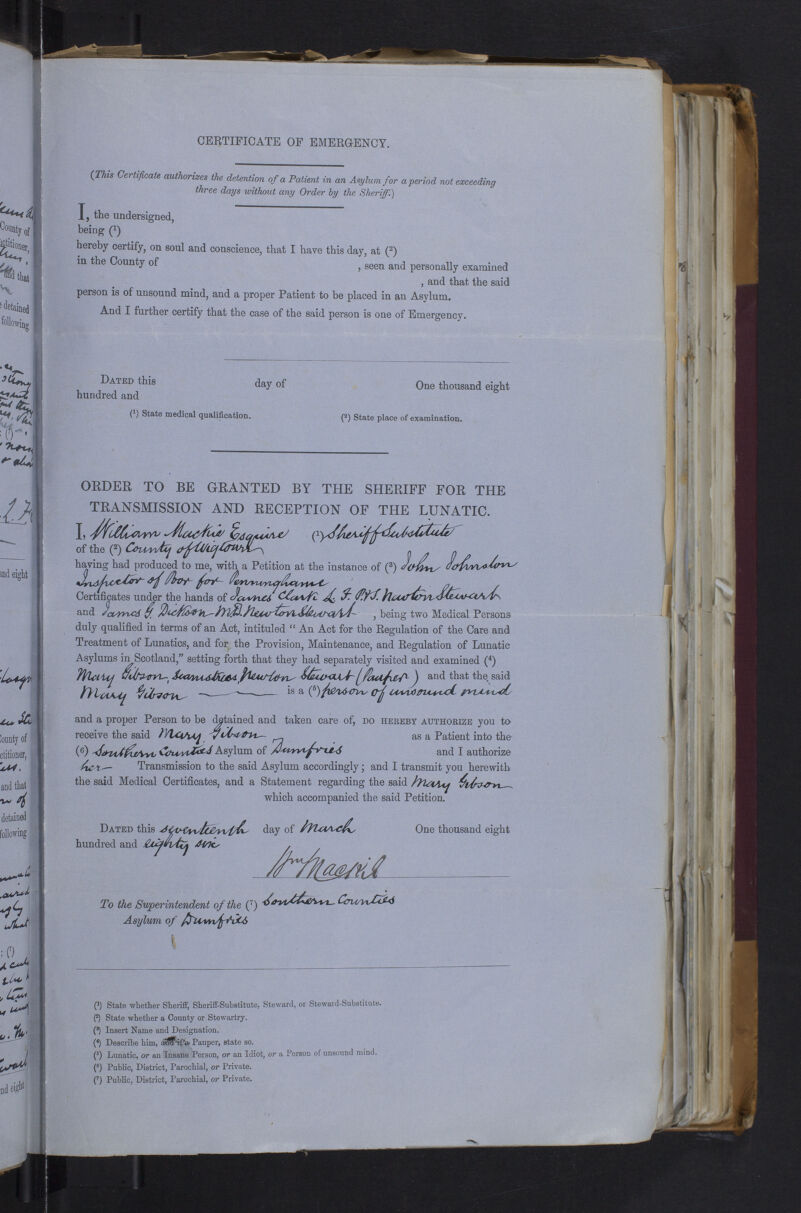 CERTIFICATE OF EMERGENCY.
(This Certificate authorizes the detention of a Patient in an Asylum for a period not exceeding
three days without any Order by the Sheriff.)
I, the undersigned,
being (1)
hereby certify, on soul and conscience, that I have this day, at (2)
in the County of , seen and personally examined
, and that the said
person is of unsound mind, and a proper Patient to be placed in an Asylum.
And I further certify that the case of the said person is one of Emergency.
DATED this day of One thousand eight
hundred and
(1) State medical qualification. (2) State place of examination.
ORDER TO BE GRANTED BY THE SHERIFF FOR THE
TRANSMISSION AND RECEPTION OF THE LUNATIC.
I, William Mackie Esquire (1) Sheriff Substitute
of the (2) County of Wigtown
having had produced to me, with a Petition at the instance of (3) John Johnston
Inspector of Poor for Penninghame
Certificates under the hands of James Clark L. F. P. & S. Newton Stewart
and James G. Dickson M.D. Newton Stewart , being two Medical Persons
duly qualified in terms of an Act, intituled "An Act for the Regulation of the Care and
Treatment of Lunatics, and for the Provision, Maintenance, and Regulation of Lunatic
Asylums in Scotland," setting forth that they had separately visited and examined (4)
Mary Gibson, Seamstress, Newton Stewart (Pauper) and that the said
Mary Gibson is a (5) person of unsound mind
and a proper Person to be detained and taken care of, DO HEREBY AUTHORIZE you to
receive the said Mary Gibson as a Patient into the
(6) Southern Counties Asylum of Dumfries and I authorize
her Transmission to the said Asylum accordingly; and I transmit you herewith
the said Medical Certificates, and a Statement regarding the said Mary Gibson
which accompanied the said Petition.
DATED this seventeenth day of March One thousand eight
hundred and eighty six
Wm Mackie
To the Superintendent of the (7) Southern Counties
Asylum of Dumfries
(1) State whether Sheriff, Sheriff-Substitute, Steward, or Steward-Substitute.
(2) State whether a County or Stewartry.
(3) Insert Name and Designation.
(4) Describe him, and if a Pauper, state so.
(5) Lunatic, or an Insane Person, or an Idiot, or a Person of unsound mind.
(6) Public, District, Parochial, or Private.
(7) Public, District, Parochial, or Private.
County of
that
detained
following
and eight
County of
etitioner,
and that
detained
following
what
nd eight